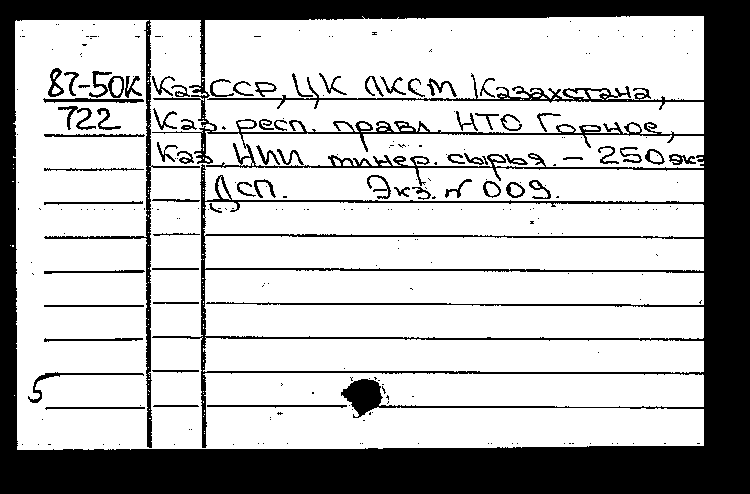 87-50К КазССР, ЦК ЛКСМ Казахстана,
722 Каз. респ. правл. НТО Горное,
Каз. НИИ минер. сырья. - 250 экз
Дсп. Экз. № 009.
5